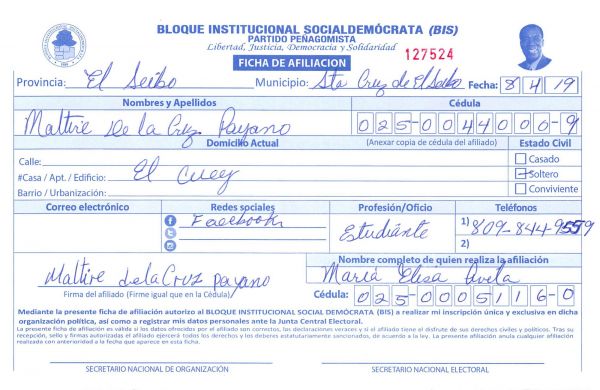 BLOQUE INSTITUCIONAL SOCIALDEMÓCRATA (BIS)
PARTIDO PEÑAGOMISTA
Libertad, Justicia, Democracia y Solidaridad
127524
FICHA DE AFILIACION
Provincia: El Seibo Municipio: Sta Cruz de El Seibo Fecha: 8/4/19
Nombres y Apellidos Cédula
Maltire De la Cruz Payano 025-0044000-9
Domicilio Actual (Anexar copia de cédula del afiliado) Estado Civil
Calle: Casado
#Casa / Apt. / Edificio: El Cuey Soltero
Barrio / Urbanización: Conviviente
Correo electrónico Redes sociales Profesión/Oficio Teléfonos
Facebook Estudiante 1) 809-844-9559
2)
Nombre completo de quien realiza la afiliación
Maltire de la Cruz Payano María Elisa
Firma del afiliado (Firme igual que en la Cédula) Cédula: 025-0005116-0
Mediante la presente ficha de afiliación autorizo al BLOQUE INSTITUCIONAL SOCIAL DEMÓCRATA (BIS) a realizar mi inscripción única y exclusiva en dicha
organización política, así como a registrar mis datos personales ante la Junta Central Electoral.
La presente ficha de afiliación es válida si los datos ofrecidos por el afiliado son correctos, las declaraciones veraces y si el afiliado tiene el disfrute de sus derechos civiles y políticos. Tras su
recepción, sello y firmas autorizadas el afiliado ejercerá todos los derechos y los deberes estatutariamente sancionados, de acuerdo a la ley. La presente afiliación anula cualquier afiliación
realizada con anterioridad a la fecha que aparece en esta ficha.
SECRETARIO NACIONAL DE ORGANIZACIÓN SECRETARIO NACIONAL ELECTORAL